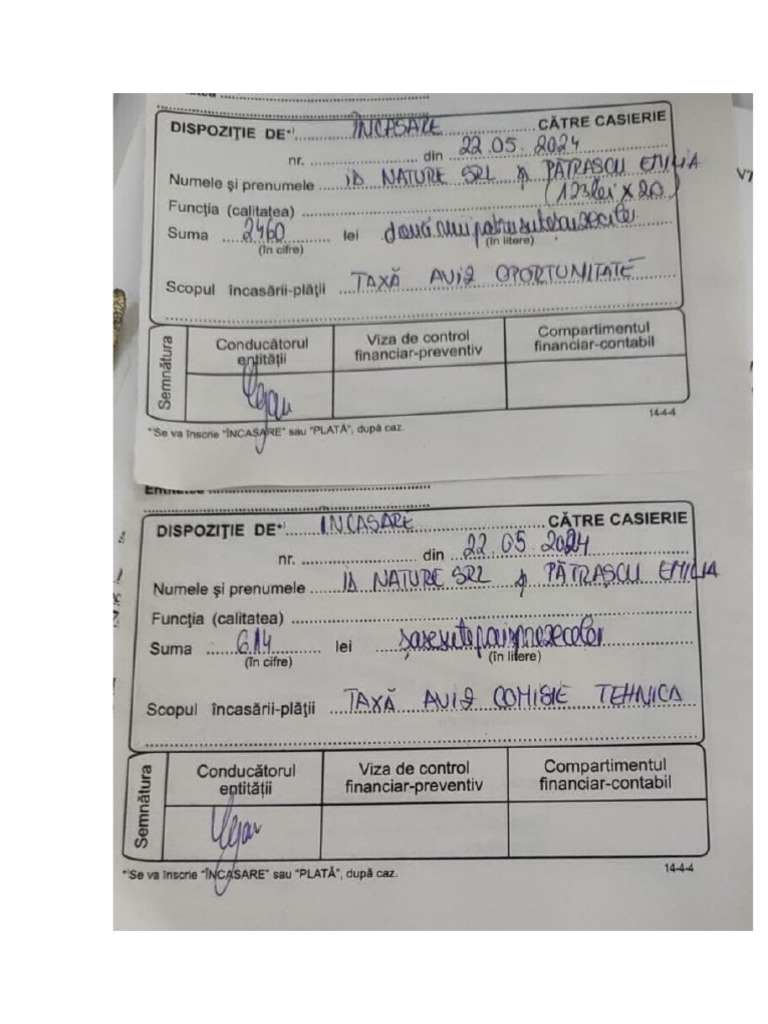 DISPOZIŢIE DE*) ÎNCASARE CĂTRE CASIERIE
nr. din 22 05. 2024
Numele şi prenumele ID NATURE SRL şi PĂTRAŞCU EMILIA
(123 lei x 20)
Funcţia (calitatea)
Suma 2460 lei două mii patru sute şaizeci lei
(în cifre) (în litere)
Scopul încasării-plăţii TAXĂ AVIZ OPORTUNITATE
Semnătura
Conducătorul entităţii
Viza de control financiar-preventiv
Compartimentul financiar-contabil
*)Se va înscrie "ÎNCASARE" sau "PLATĂ", după caz.
14-4-4
DISPOZIŢIE DE*) INCASARE CĂTRE CASIERIE
nr. din 22.05 2024
Numele şi prenumele ID NATURE SRL şi PĂTRAŞCU EMILIA
Funcţia (calitatea)
Suma 614 lei
(în cifre) (în litere)
Scopul încasării-plăţii TAXĂ AVIZ COMISIE TEHNICA
Semnătura
Conducătorul entităţii
Viza de control financiar-preventiv
Compartimentul financiar-contabil
*)Se va înscrie "ÎNCASARE" sau "PLATĂ", după caz.
14-4-4